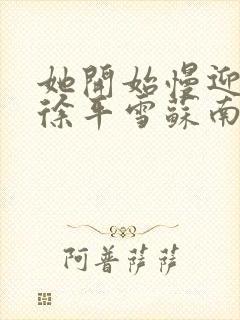 她開始慢迎
徐平雪蘇南
阿普薩薩